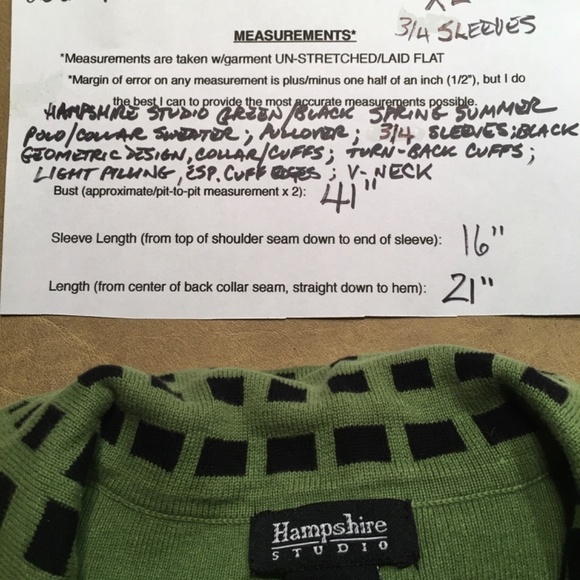 XL
3/4 SLEEVES
MEASUREMENTS*
*Measurements are taken w/garment UN-STRETCHED/LAID FLAT
*Margin of error on any measurement is plus/minus one half of an inch (1/2"), but I do
the best I can to provide the most accurate measurements possible.
HAMPSHIRE STUDIO GREEN/BLACK SPRING SUMMER
POLO/COLLAR SWEATER; PULLOVER; 3/4 SLEEVES; BLACK
GEOMETRIC DESIGN, COLLAR/CUFFS; TURN-BACK CUFFS;
LIGHT PILLING, ESP. CUFF EDGES; V-NECK
Bust (approximate/pit-to-pit measurement x 2): 41"
Sleeve Length (from top of shoulder seam down to end of sleeve): 16"
Length (from center of back collar seam, straight down to hem): 21"
Hampshire
STUDIO